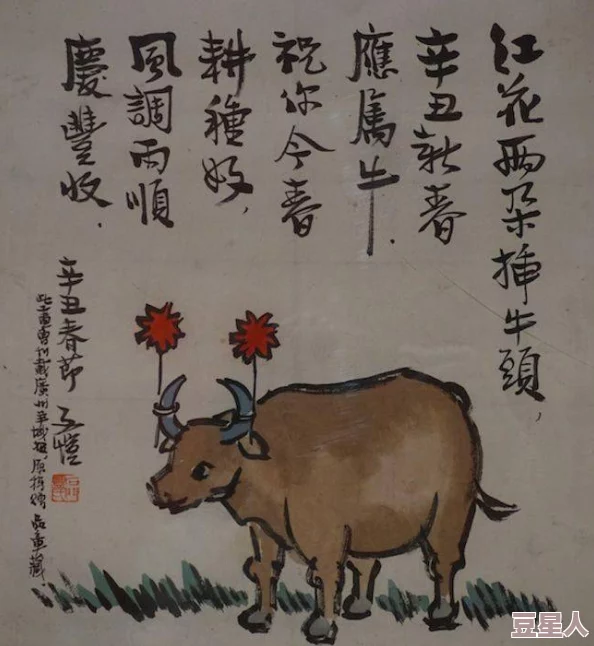 红花兩朵插牛頭，
辛丑新春
應屬牛．
祝你今春
耕種好，
風調雨順
慶豐收．
辛丑春節 子愷
此畫曾刊載廣州羊城報，原稿贈 藏
豆星人